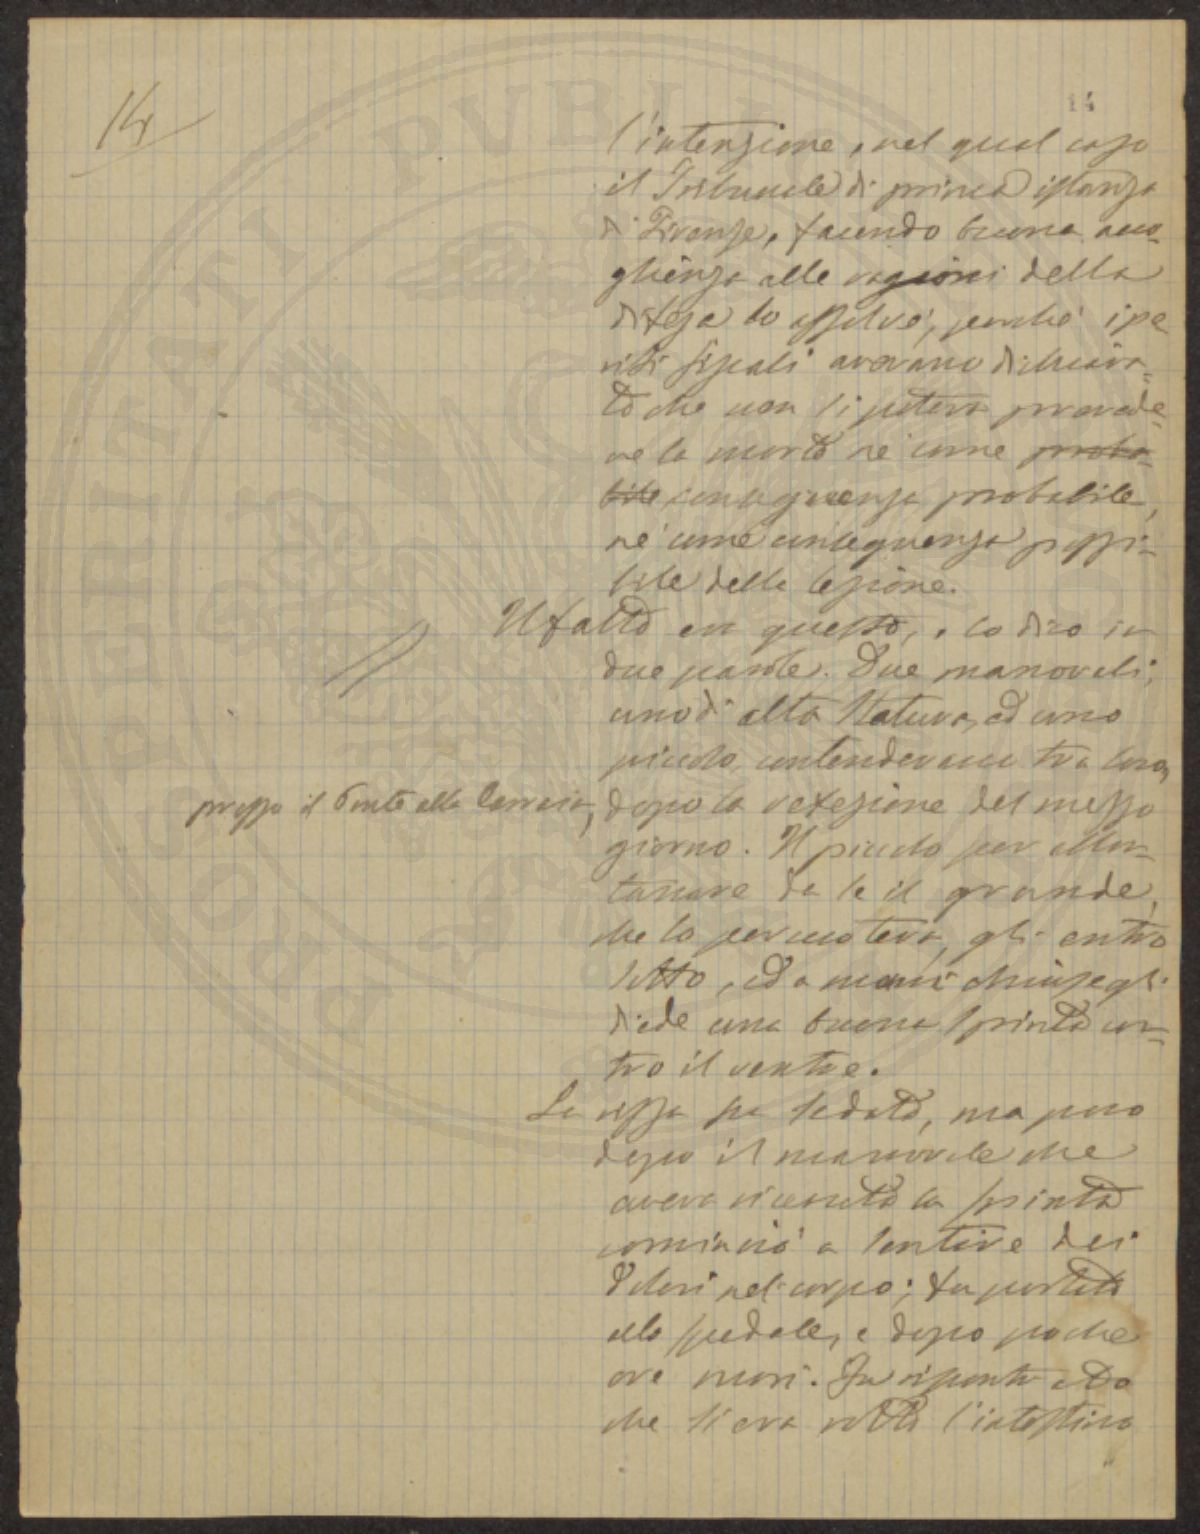 14
14
l'intenzione, nel qual caso
il Tribunale di prima istanza
di Firenze, facendo buona acco-
glienza alle ragioni della
difesa lo assolvé, perché i pe
riti fiscali avevano dichiara-
to che non si poteva prevede-
re la morte né come proba-
bile conseguenza probabile,
né come conseguenza possi-
bile della lesione.
Il fatto era questo, e lo dico in
due parole. Due manovali,
uno di alta statura, ed uno
piccolo, contendevano tra loro,
presso il Ponte alla Carraia,
dopo la refezione del mezzo
giorno. Il piccolo per allon-
tanare da se il grande,
che lo percuoteva, gli entrò
sotto, ed a mani chiuse gli
diede una buona spinta con-
tro il ventre.
La rissa fu sedata, ma poco
dopo il manovale che
aveva ricevuto la spinta
cominciò a sentire dei
dolori nel corpo; fu portato
allo spedale, e dopo poche
ore morì. Fu riscontrato
che si era rotto l'intestino
PROSPERITATI PVBLI